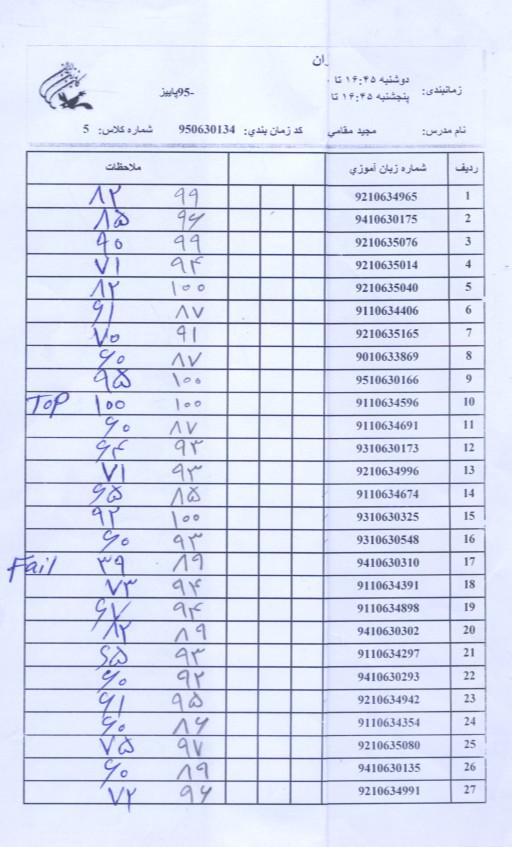 ران
زمانبندی: دوشنبه ۱۶:۴۵ تا
پنجشنبه ۱۶:۴۵ تا
-95پاییز
نام مدرس: مجید مقامی کد زمان بندي: 950630134 شماره کلاس: 5
ردیف شماره زبان آموزي ملاحظات
1 9210634965 ۹۹ ۸۲
2 9410630175 ۹۶ ۸۵
3 9210635076 ۹۹ ۹۰
4 9210635014 ۹۴ ۷۱
5 9210635040 ۱۰۰ ۸۲
6 9110634406 ۸۷ ۶۱
7 9210635165 ۹۱ ۷۰
8 9010633869 ۸۷ ۶۰
9 9510630166 ۱۰۰ ۹۵
10 9110634596 ۱۰۰ ۱۰۰ TOP
11 9110634691 ۸۷ ۶۰
12 9310630173 ۹۳ ۶۴
13 9210634996 ۹۳ ۷۱
14 9110634674 ۸۵ ۶۵
15 9310630325 ۱۰۰ ۹۲
16 9310630548 ۹۳ ۶۰
17 9410630310 ۸۹ ۳۹ Fail
18 9110634391 ۹۴ ۷۳
19 9110634898 ۹۴ ۶۷
20 9410630302 ۸۹ ۸۲
21 9110634297 ۹۳ ۶۵
22 9410630293 ۹۲ ۶۰
23 9210634942 ۹۵ ۶۱
24 9110634354 ۸۶ ۶۰
25 9210635080 ۹۷ ۷۵
26 9410630135 ۸۹ ۶۰
27 9210634991 ۹۶ ۷۲